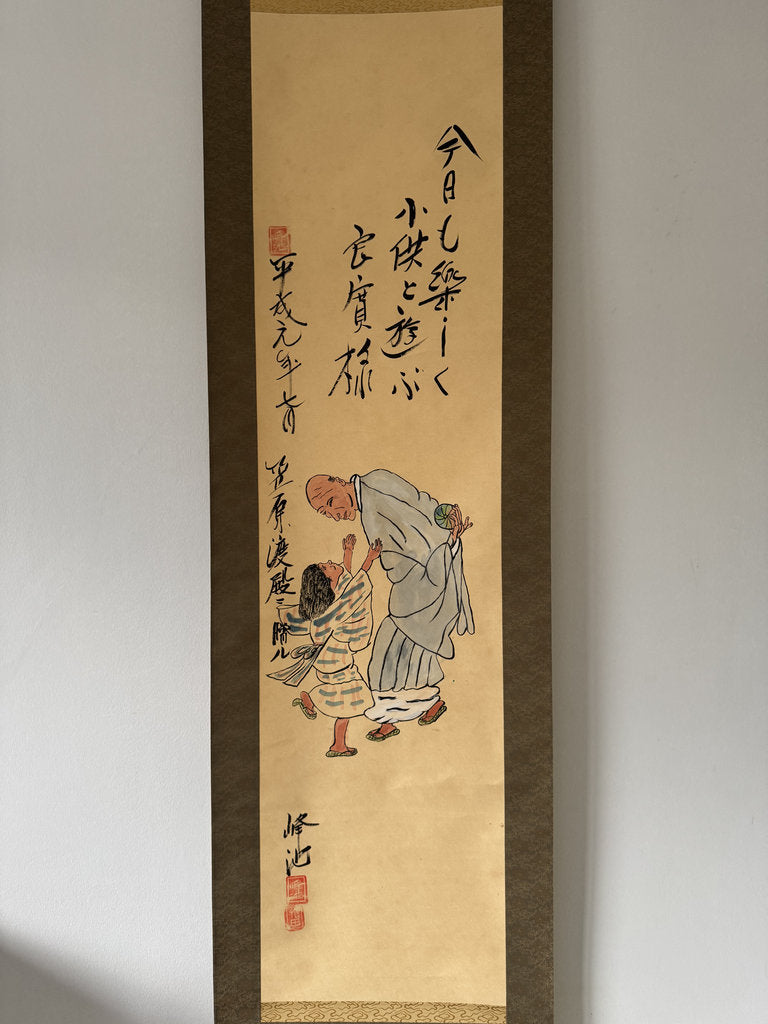 今日も樂しく
小供と遊ぶ
良寛様
平成元年七月
笠原渡殿ニ贈ル
峰池